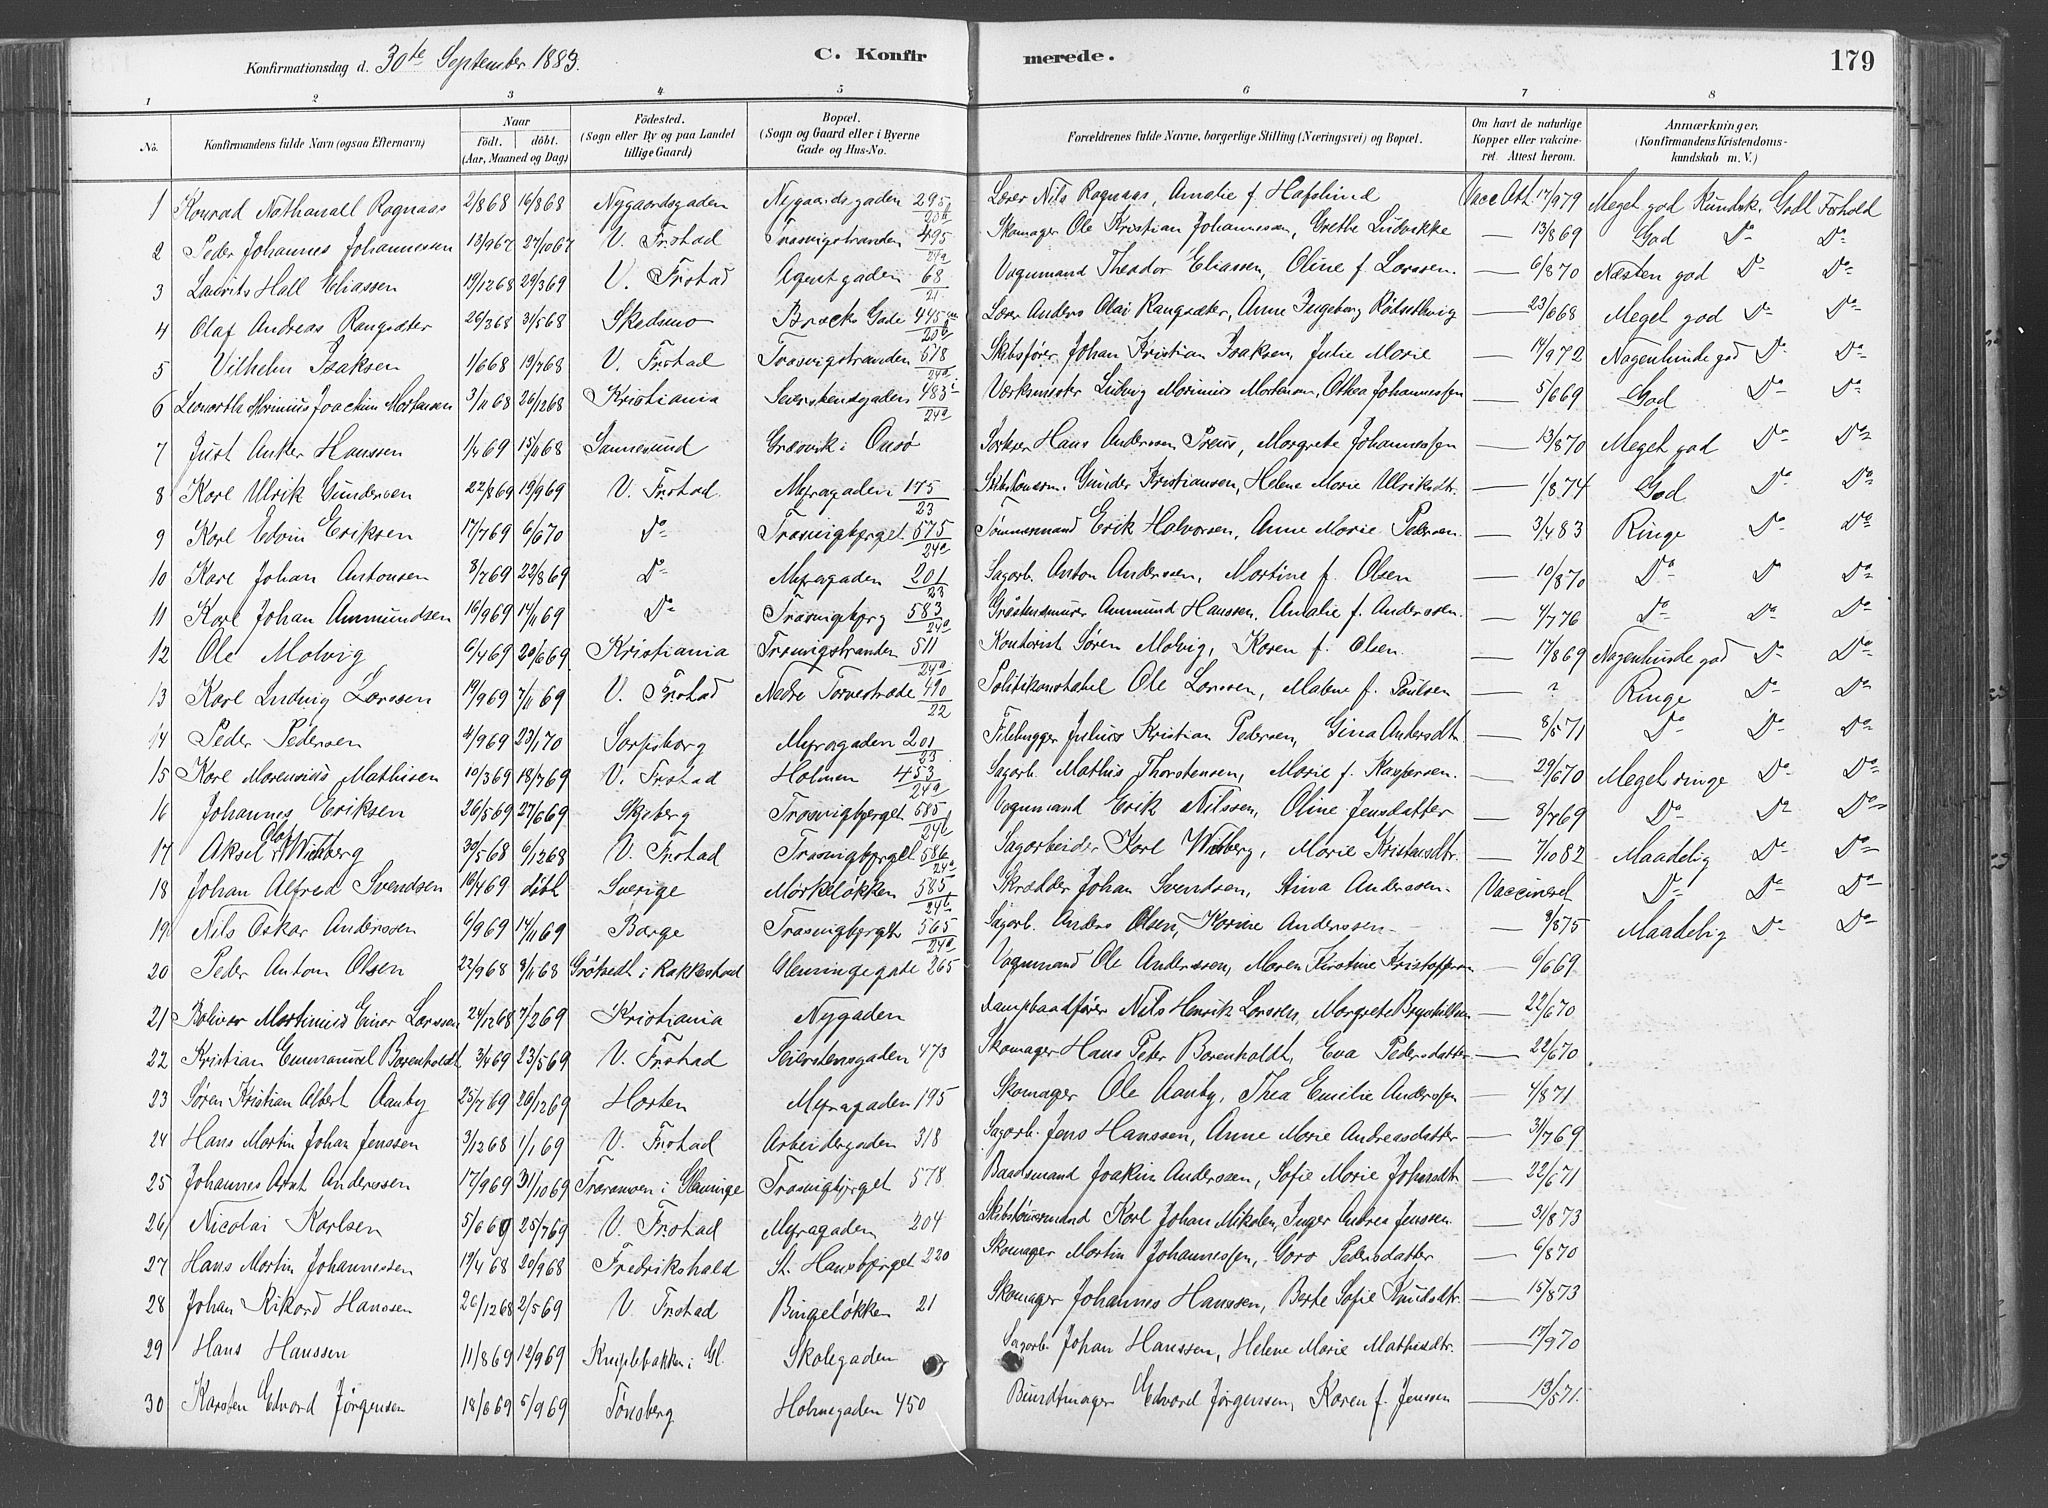 Konfirmationsdag d. 30te September 1883. C. Konfirmerede. 179
1 2 3 4 5 6 7 8
No. Konfirmandens fulde Navn (ogsaa Efternavn) Naar født. døbt. (Aar, Maaned og Dag) Fødested. (Sogn eller By og paa Landet tillige Gaard) Bopæl. (Sogn og Gaard eller i Byerne Gade og Hus-No. Forældrenes fulde Navne, borgerlige Stilling (Næringsvei) og Bopæl. Om havt de naturlige Kopper eller vaccineret. Attest herom. Anmærkninger. (Konfirmandens Kristendomskundskab m. V.)
1 Konrad Nathanall Ragnaas 2/8 68 16/8 68 Nygaardsgaden Nygaardsgaden 295/23b Lærer Nils Ragnaas, Amalie f. Hafslund Vacc Att. 17/9 79 Meget god Kundsk. Godt Forhold
2 Peder Johannes Johannesen 13/9 67 27/10 67 V. Frstad Trosvigstranden 495/24a Skomager Ole Kristian Johannesen, Grethe Ludvikke — 13/8 69 God Do Do
3 Laurits Hall Eliassen 19/12 68 29/3 69 V. Frstad Agentgaden 68/21 Vognmand Theodor Eliassen, Oline f. Larssen. — 6/8 70 Næsten god Do Do
4 Olaf Andreas Rangsæter 26/3 68 31/5 68 Skedsmo Brocks Gade 445/23b Lærer Anders Olai Rangsæter, Anne Ingeborg — 23/6 68 Meget god Do Do
5 Vilhelm Isaksen 1/6 68 19/7 68 V. Frstad Trosvigstranden 518/24a Skibsfører Johan Kristian Isaksen, Julie Marie — 14/9 72 Nogenlunde god Do Do
6 Leonarth Marinius Joachim Mortensen 3/11 68 26/12 68 Kristiania Seierstensgaden 483/24a Værkmester Ludvig Marinius Mortensen, Othea Johannessen — 5/6 69 God Do Do
7 Just Anker Hanssen 1/4 69 15/11 68 Sannesund Græsvik i Onsø Hans Anderssen Preus, Margrete Johannessen — 13/8 70 Meget god Do Do
8 Karl Ulrik Gundersen 22/8 69 19/9 69 V. Frstad. Myragaden 175/23 Skibstømm. Gunder Kristiansen, Helene Marie Ullriksdtr. — 1/8 74 God Do Do
9 Karl Edvin Eriksen 17/7 69 6/6 70 Do Trosvigbjerget 575/24a Tømmermand Erik Halvorsen, Anne Marie Pedersen. — 3/4 83 Ringe Do Do
10 Karl Johan Antonsen 8/7 69 22/8 69 Do Myragaden 201/23 Sagarb. Anton Anderssen, Martine f. Olsen — 10/8 70 Do Do Do
11 Karl Johan Ammundsen 16/9 69 14/11 69 Do Trosvigbjerg 583/24a Graastensmurer Ammund Hanssen. Amalie f. Anderssen. — 4/7 76 Do Do Do
12 Ole Molvig 6/4 69 20/6 69 Kristiania Trosvigstranden 511/24a Kontorist Søren Molvig, Karen f. Olsen. — 17/8 69 Nogenlunde god Do Do
13 Karl Ludvig Larssen 19/9 69 7/11 69 V. Frstad Nedre Torvestræde 490/22 Politikonstabel Ole Larssen, Malene f. Poulsen — ? Ringe Do Do
14 Peder Pedersen 4/9 69 23/1 70 Sarpsborg Myragaden 201/23 Filehugger Julius Kristian Pedersen, Gina Andersdtr — 8/5 71 Do Do Do
15 Karl Marensius Mathisen 10/3 69 18/7 69 V. Frstad Holmen 453/24a Sagarb. Mathis Thorstensen, Marie f. Kaspersen. — 29/6 70 Meget ringe Do Do
16 Johannes Eriksen 26/5 69 27/6 69 Skjeberg Trosvigbjerget 585/24b Vognmand Erik Nilssen, Oline Jensdatter — 8/7 69 Do Do Do
17 Aksel Olaf Widberg 30/5 68 6/12 68 V. Frstad Trosvigbjerget 586/24a Sagarbeider Karl Widberg, Marie Kristansdtr. — 7/10 82 Maadelig Do Do
18 Johan Alfred Svendsen 16/4 69 døbt Sverige Mørkeløkken 585/24b Skrædder Johan Svendsen, Stina Anderssen. Vaccineret Do Do Do
19 Nils Oskar Anderssen 6/9 69 14/11 69 Borge Trosvigbjerget 565/24a Sagarb. Anders Olsen, Karine Anderssen. — 9/8 75 Maadelig Do Do
20 Peder Anton Olsen 22/9 68 8/11 68 i Rakkestad Glemmingegade 265 Vognmand Ole Anderssen, Maren Kirstine Kristoffersen — 6/6 69
21 Bolivar Martinius Einar Larssen 24/12 68 7/2 69 Kristiania Nygaden Dampbaadfører Nils Henrik Larssen, Margrete — 22/6 70
22 Kristian Emmanuel Borenholdt 3/4 69 23/5 69 V. Frstad Seierstensgaden 473 Skomager Hans Peter Borenholdt, Eva Pedersdatter — 22/6 70
23 Søren Kristian Albert Aanby 25/7 69 26/12 69 Horten Myragaden 195 Skomager Ole Aanby, Thea Emilie Anderssen — 4/8 71
24 Hans Martin Johan Jenssen 3/12 68 1/1 69 V. Frstad Arbeidergaden 318 Sagarb. Jens Hanssen, Anne Marie Andreasdatter — 31/7 69
25 Johannes Arnt Anderssen 17/9 69 31/10 69 i Glemminge Trosvigbjerget 578 Baadsmand Joakim Anderssen, Sofie Marie Johansdtr. — 22/6 71
26 Nicolai Karlsen 5/6 69 25/7 69 V. Frstad Myragaden 204 Skibstømmermand Karl Johan Mikalsen, Inger Andrea Jenssen. — 31/8 73
27 Hans Martin Johannessen 19/4 68 20/9 68 Fredrikshald St. Hansbjerget 220 Skomager Martin Johannessen, Goro Pedersdatter — 6/8 70
28 Johan Rikard Hanssen 26/12 68 2/5 69 V. Frstad Bingeløkken 21 Skomager Johannes Hanssen, Berte Sofie Knudsdtr. — 15/8 73
29 Hans Hanssen 11/8 69 12/9 69 Kniplebakken i Gl. Skolegaden Sagarb. Johan Hanssen, Helene Marie Mathisdtr. — 17/9 70
30 Karsten Edvard Jørgensen 18/6 69 5/9 69 Tønsberg Holmegaden 450 Bundtmager Edvard Jørgenssen, Karen f. Jenssen — 13/5 71.